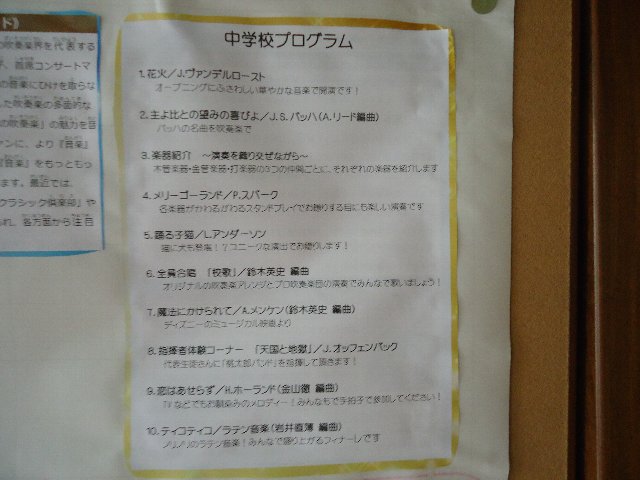 ド》
の吹奏楽界を代表する
、首席コンサートマ
の音楽にひけを取らな
した吹奏楽の多面的な
の吹奏楽」の魅力を目
ァンに、より『音楽』
音楽』をもっともっ
ます。最近では、
クラシック倶楽部」や
られ、各方面から注目
中学校プログラム
1.花火/J.ヴァンデルロースト
オープニングにふさわしい華やかな音楽で開演です!
2.主よ人の望みの喜びよ/J.S.バッハ(A.リード編曲)
バッハの名曲を吹奏楽で
3.楽器紹介 ～演奏を織り交ぜながら～
木管楽器・金管楽器・打楽器の3つの仲間ごとに、それぞれの楽器を紹介します
4.メリーゴーランド/P.スパーク
各楽器がかわるがわるスタンドプレイでお贈りする目にも楽しい演奏です
5.踊る子猫/L.アンダーソン
猫に犬も登場!?ユニークな演出でお贈りします!
6.全員合唱 「校歌」/鈴木英史 編曲
オリジナルの吹奏楽アレンジとプロ吹奏楽団の演奏でみんなで歌いましょう!
7.魔法にかけられて/A.メンケン(鈴木英史 編曲)
ディズニーのミュージカル映画より
8.指揮者体験コーナー 「天国と地獄」/J.オッフェンバック
代表生徒さんに「桃太郎バンド」を指揮して頂きます!
9.恋はあせらず/H.ホーランド(金山徹 編曲)
などでもお馴染みのメロディー!みんなも手拍子で参加してください!
10.ティコティコ/ラテン音楽(岩井直溥 編曲)
ノリノリのラテン音楽!みんなで盛り上がるフィナーレです